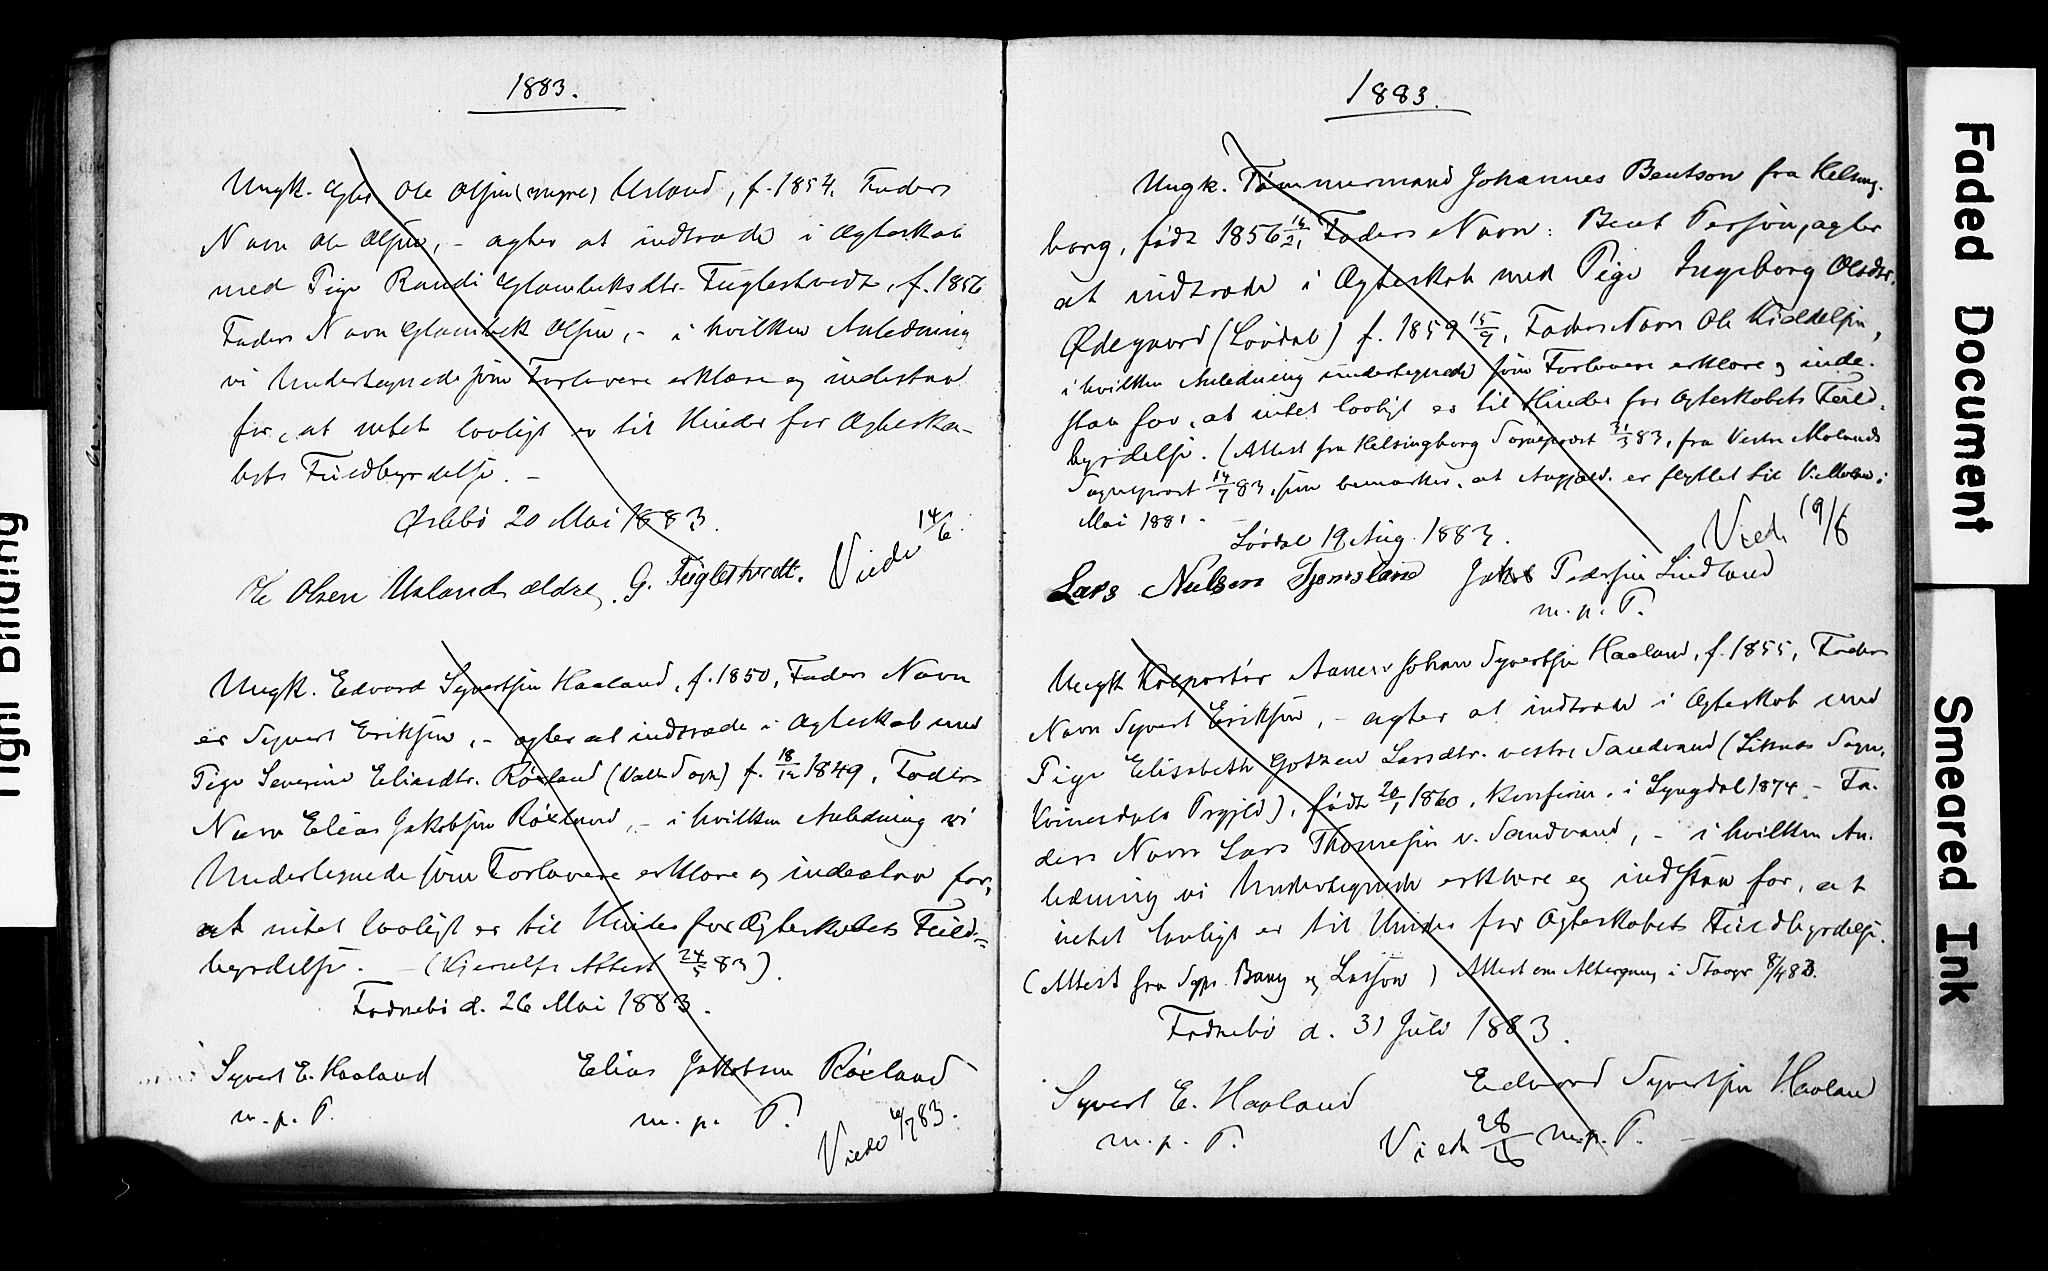 1883.
Ungk. Gbr. Ole Olsen (yngre) Usland, f. 1854. Faders
Navn Ole Olsen, - agter at indtræde i Ægteskab
med Pige Randi Glambeksdtr. Fuglestvedt, f. 1856
Faders Navn Glambek Olsen, - i hvilken Anledning
vi Undertegnede som Forlovere erklære og indestaa
for, at intet lovligt er til Hinder for Ægteska-
bets Fuldbyrdelse. -
Øslebø 20 Mai 1883.
Viede 14/6.
Ole Olsen Usland ældre. G. Fuglestvedt.
Ungk. Edvard Syvertsen Haaland, f. 1850, Faders Navn
er Syvert Eriksen, - agter at indtræde i Ægteskab med
Pige Severine Eliasdtr. Røxland (Valle Sogn) f. 18/12 1849, Faders
Navn Elias Jakobsen Røxland, - i hvilken Anledning vi
Undertegnede som Forlovere erklære og indestaa for,
at intet lovligt er til Hinder for Ægteskabets Fuld-
byrdelse. - (Kjerulfs Attest 24/5 83).
Fadnebø d. 26 Mai 1883.
Syvert E. Haaland Elias Jakobsen Røxland
m. p. P. m. p. P.
Viede /7 83.
1883.
Ungk. Tømmermand Johannes Bentson fra Helsing-
borg, født 1856 Faders Navn: Bent Persøn, agter
at indtræde i Ægteskab med Pige Ingeborg Olsdtr.
Ødegaard (Løvdal) f. 1859 15/9, Faders Navn Ole Kiddelsen,
i hvilken Anledning undertegnede som Forlovere erklære og inde-
staa for, at intet lovligt er til Hinder for Ægteskabets Fuld-
byrdelse. (Attest fra Helsingborg Sognepræst 31/3 83, fra Vestre Molands
Sognepræst 14/7 83, som bemærker, at Angjæld. er flyttet til V. Moland i
Mai 1881. -
Løvdal 19 Aug. 1883.
Viede 19/8
Lars Nielsen Tjomsland Jakob Pedersen Lindland
m. p. P.
Ungk Kolportør Aanen Johan Syvertsen Haaland, f. 1855, Faders
Navn Syvert Eriksen, - agter at indtræde i Ægteskab med
Pige Elisabeth Gotzen Larsdtr. vestre Sandvand (Liknes Sogn,
Kvinesdals Prgjld), født 20/1 1860, konfirm. i Lyngdal 1874. - Fa-
ders Navn Lars Thomesen v. Sandvand, - i hvilken An-
ledning vi Undertegnede erklære og indstaa for, at
intet lovligt er til Hinder for Ægteskabets Fuldbyrdelse.
(Attest fra Sgpr. Bang og Lassen) Attest om Altergang i Stavgr 8/4 83.
Fadnebø d. 31 Juli 1883.
Syvert E. Haaland Edvard Syvertsen Haaland
m. p. P. m. p. P.
Viede 28
Faded Document
Smeared Ink
Tight Binding